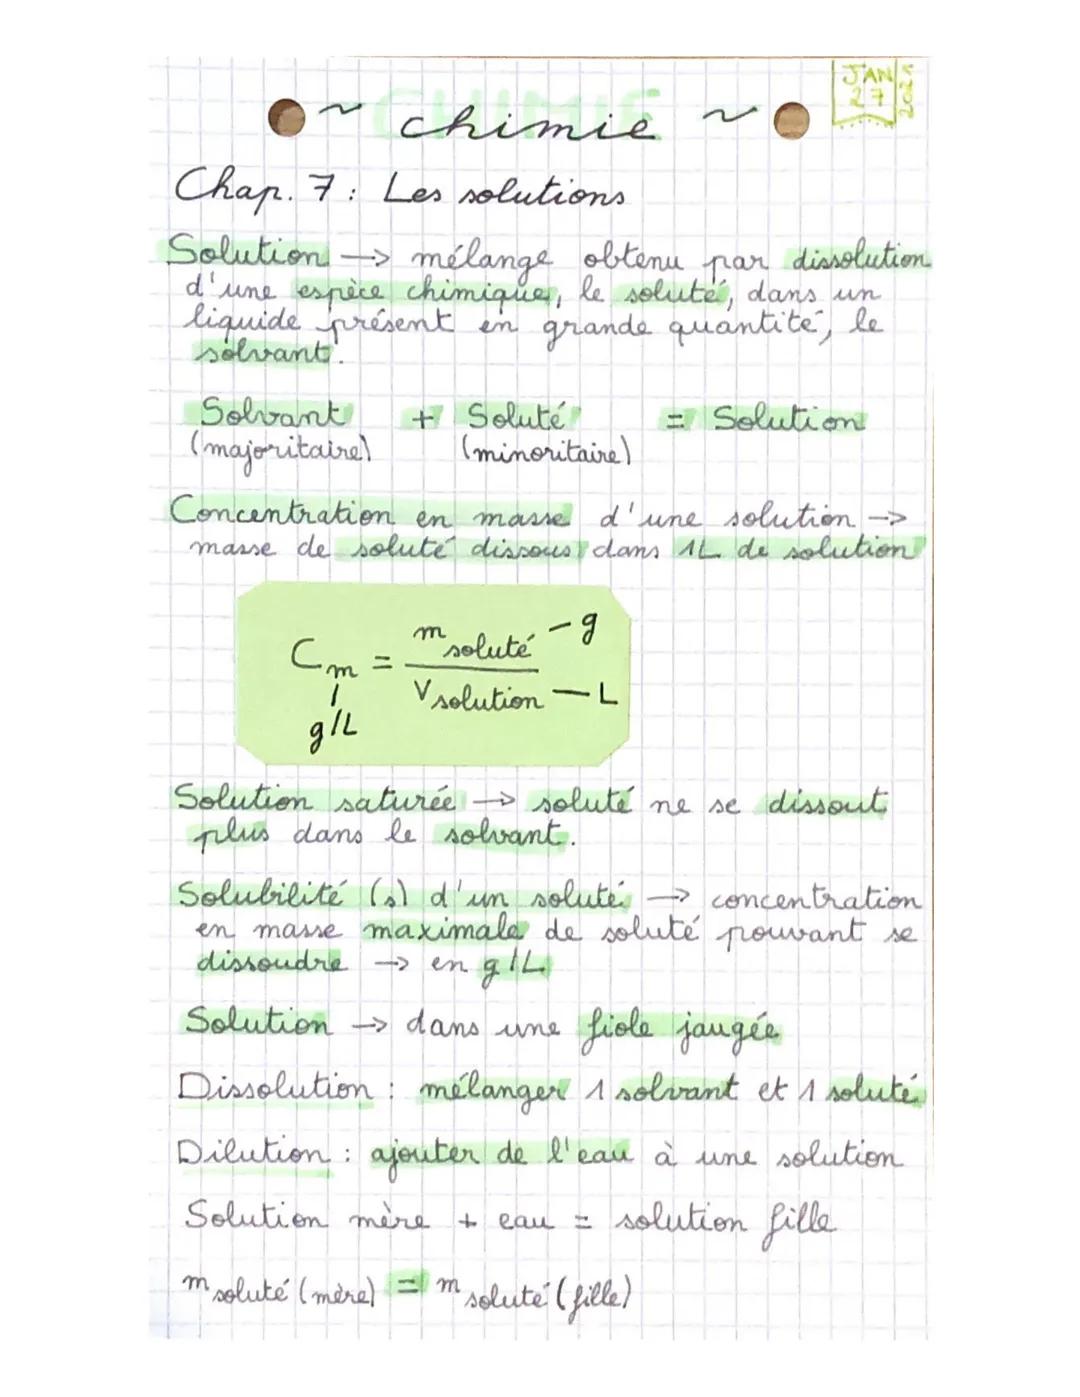 CHIMIE
JAN 27 2025
~ chimie ~
Chap. 7 : Les solutions
Solution → mélange obtenu par dissolution
d'une espèce chimique, le soluté, dans un
liquide présent en grande quantité, le
solvant.
Solvant + Soluté = Solution
(majoritaire) (minoritaire)
Concentration en masse d'une solution →
masse de soluté dissous dans 1L de solution
Cm = m soluté - g
V solution - L
g/L
Solution saturée → soluté ne se dissout
plus dans le solvant.
Solubilité (s) d'un soluté → concentration
en masse maximale de soluté pouvant se
dissoudre → en g/L
Solution → dans une fiole jaugée
Dissolution : mélanger 1 solvant et 1 soluté
Dilution : ajouter de l'eau à une solution
Solution mère + eau = solution fille
m soluté (mère) = m soluté (fille)